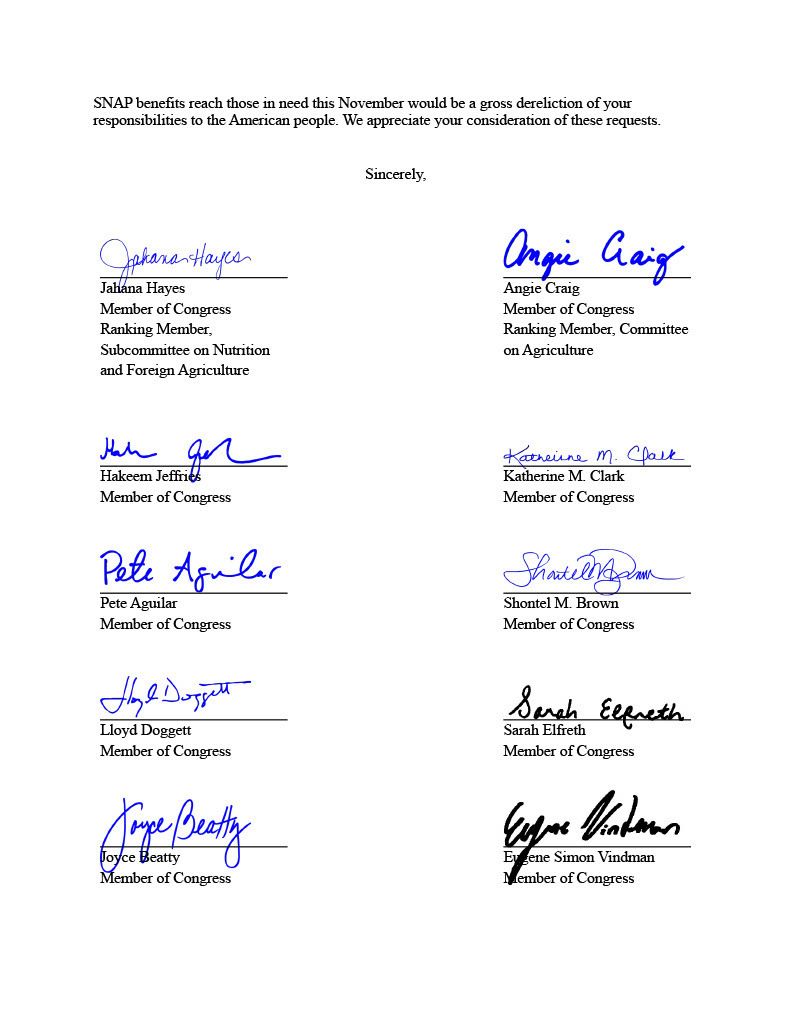 SNAP benefits reach those in need this November would be a gross dereliction of your
responsibilities to the American people. We appreciate your consideration of these requests.
Sincerely,
Jahana Hayes
Jahana Hayes
Member of Congress
Ranking Member,
Subcommittee on Nutrition
and Foreign Agriculture
Angie Craig
Angie Craig
Member of Congress
Ranking Member, Committee
on Agriculture
Hakeem Jeffries
Member of Congress
Katherine M. Clark
Katherine M. Clark
Member of Congress
Pete Aguilar
Pete Aguilar
Member of Congress
Shontel M. Brown
Member of Congress
Lloyd Doggett
Lloyd Doggett
Member of Congress
Sarah Elfreth
Sarah Elfreth
Member of Congress
Joyce Beatty
Joyce Beatty
Member of Congress
Eugene Vindman
Eugene Simon Vindman
Member of Congress